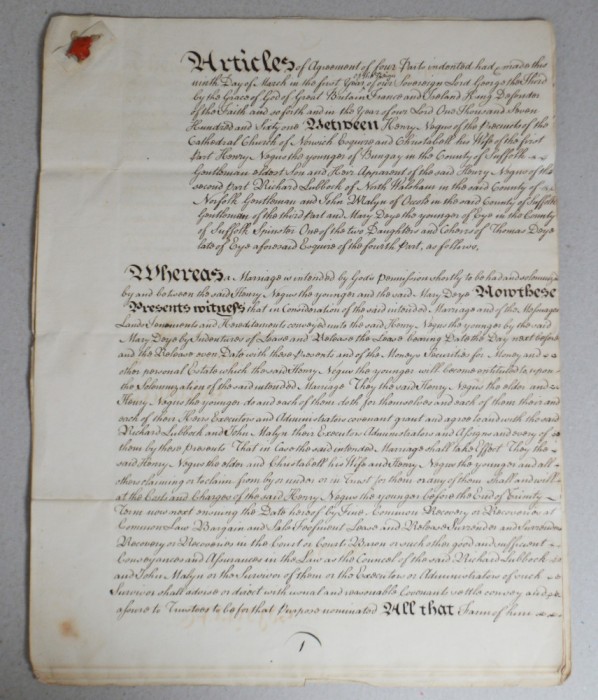 Articles of Agreement of four Parts indented had & made this
ninth Day of March in the first Year of the Reign of our Sovereign Lord George the Third
by the Grace of God of Great Britain France and Ireland King Defender
of the Faith and so forth and in the Year of our Lord One Thousand Seven
Hundred and Sixty one Between Henry Negus of the Precincts of the
Cathedral Church of Norwich Esquire and Christabell his Wife of the first
Part Henry Negus the younger of Bungay in the County of Suffolk
Gentleman eldest Son and Heir Apparent of the said Henry Negus of the
second Part Richard Lubbock of North Walsham in the said County of
Norfolk Gentleman and John Malyn of in the said County of Suffolk
Gentleman of the third Part and Mary Deye the younger of Eye in the County
of Suffolk Spinster One of the two Daughters and Coheirs of Thomas Deye
late of Eye aforesaid Esquire of the fourth Part, as follows,
Whereas a Marriage is intended by God's Permission shortly to be had and solemnized
by and between the said Henry Negus the younger and the said Mary Deye Now these
Presents witness that in Consideration of the said intended Marriage and of the Messuages
Lands Tenements and Hereditaments conveyed unto the said Henry Negus the younger by the said
Mary Deye by Indentures of Lease and Release the Lease bearing Date the Day next before
and the Release even Date with these Presents and of the Moneys Securities for Money and
other personal Estate which the said Henry Negus the younger will become entituled to upon
the Solemnization of the said intended Marriage They the said Henry Negus the elder and
Henry Negus the younger do and each of them doth for themselves and each of them their and
each of their Heirs Executors and Administrators covenant grant and agree to and with the said
Richard Lubbock and John Malyn their Executors Administrators and Assigns and every of
them by these Presents That in Case the said intended Marriage shall take Effect They the
said Henry Negus the elder and Christabell his Wife and Henry Negus the younger and all
others claiming or to claim from by or under or in Trust for them or any of them shall and will
at the Costs and Charges of the said Henry Negus the younger before the End of Trinity
Term now next ensuing the Date hereof by Fine Common Recovery or Recoveries at
Common Law Bargain and Sale Feofment Lease and Release Surrender and Surrenders
Recovery or Recoveries in the Court or Courts Baron or such other good and sufficient
Conveyances and Assurances in the Law as the Council of the said Richard Lubbock
and John Malyn or the Survivor of them or the Executors or Administrators of such
Survivor shall advise or direct with usual and reasonable Covenants settle convey and
assure to Trustees to be for that Purpose nominated All that Farm of him
1